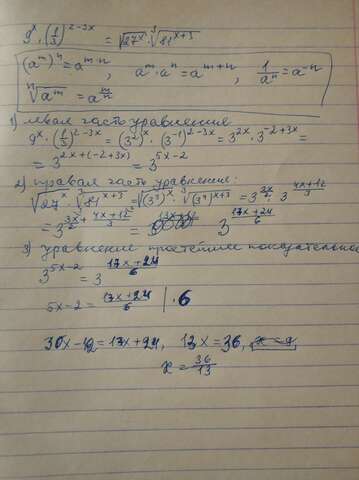 9^x · (1/3)^{2-3x} = √27^x · ∛81^{x+3}
(a^m)^n = a^{m·n}, a^m · a^n = a^{m+n}, 1/a^n = a^{-n}
ⁿ√a^m = a^{m/n}
1) левая часть уравнения
9^x · (1/3)^{2-3x} = (3^2)^x · (3^{-1})^{2-3x} = 3^{2x} · 3^{-2+3x} =
= 3^{2x+(-2+3x)} = 3^{5x-2}
2) правая часть уравнения:
√27^x · ∛81^{x+3} = √(3^3)^x · ∛(3^4)^{x+3} = 3^{3x/2} · 3^{(4x+12)/3}
= 3^{3x/2 + (4x+12)/3} = 3^{(17x+24)/6}
3) уравнение простейшее показательное
3^{5x-2} = 3^{(17x+24)/6}
5x-2 = (17x+24)/6 | · 6
30x-12 = 17x+24, 13x = 36,
x = 36/13